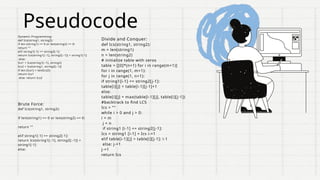 Pseudocode
Dynamic Programming:
def lcs(string1, string2):
if len(string1) == 0 or len(string2) == 0:
return ""
elif string1[-1] == string2[-1]:
return lcs(string1[:-1], string2[:-1]) + string1[-1]
else:
lcs1 = lcs(string1[:-1], string2)
lcs2 = lcs(string1, string2[:-1])
if len(lcs1) > len(lcs2):
return lcs1
else: return lcs2
Brute Force:
def lcs(string1, string2):
if len(string1) == 0 or len(string2) == 0:
return ""
elif string1[-1] == string2[-1]:
return lcs(string1[:-1], string2[:-1]) +
string1[-1]
else:
Divide and Conquer:
def lcs(string1, string2):
m = len(string1)
n = len(string2)
# initialize table with zeros
table = [[0]*(n+1) for i in range(m+1)]
for i in range(1, m+1):
for j in range(1, n+1):
if string1[i-1] == string2[j-1]:
table[i][j] = table[i-1][j-1]+1
else:
table[i][j] = max(table[i-1][j], table[i][j-1])
#backtrack to find LCS
lcs = ""
while i > 0 and j > 0:
i = m
j = n
if string1 [i-1] == string2[j-1]:
lcs = string1 [i-1] + lcs i-=1
elif table[i-1][j] > table[i][j-1]: i-=1
else: j-=1
j-=1
return lcs